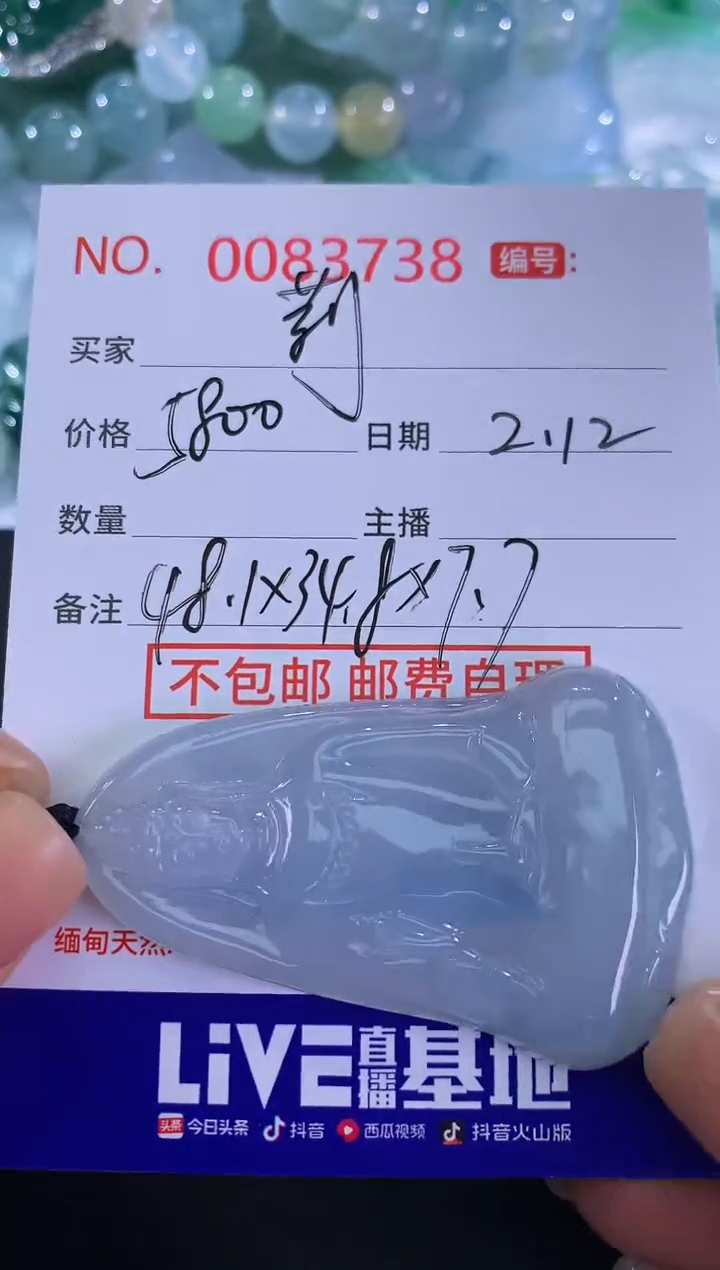 NO. 0083738 编号:
买家 荆
价格 5800 日期 2.12
数量 主播
备注 48.1×34.8×7.7
不包邮 邮费自理
缅甸天然
LiVE直播基地
头条 今日头条 抖音 西瓜视频 抖音火山版